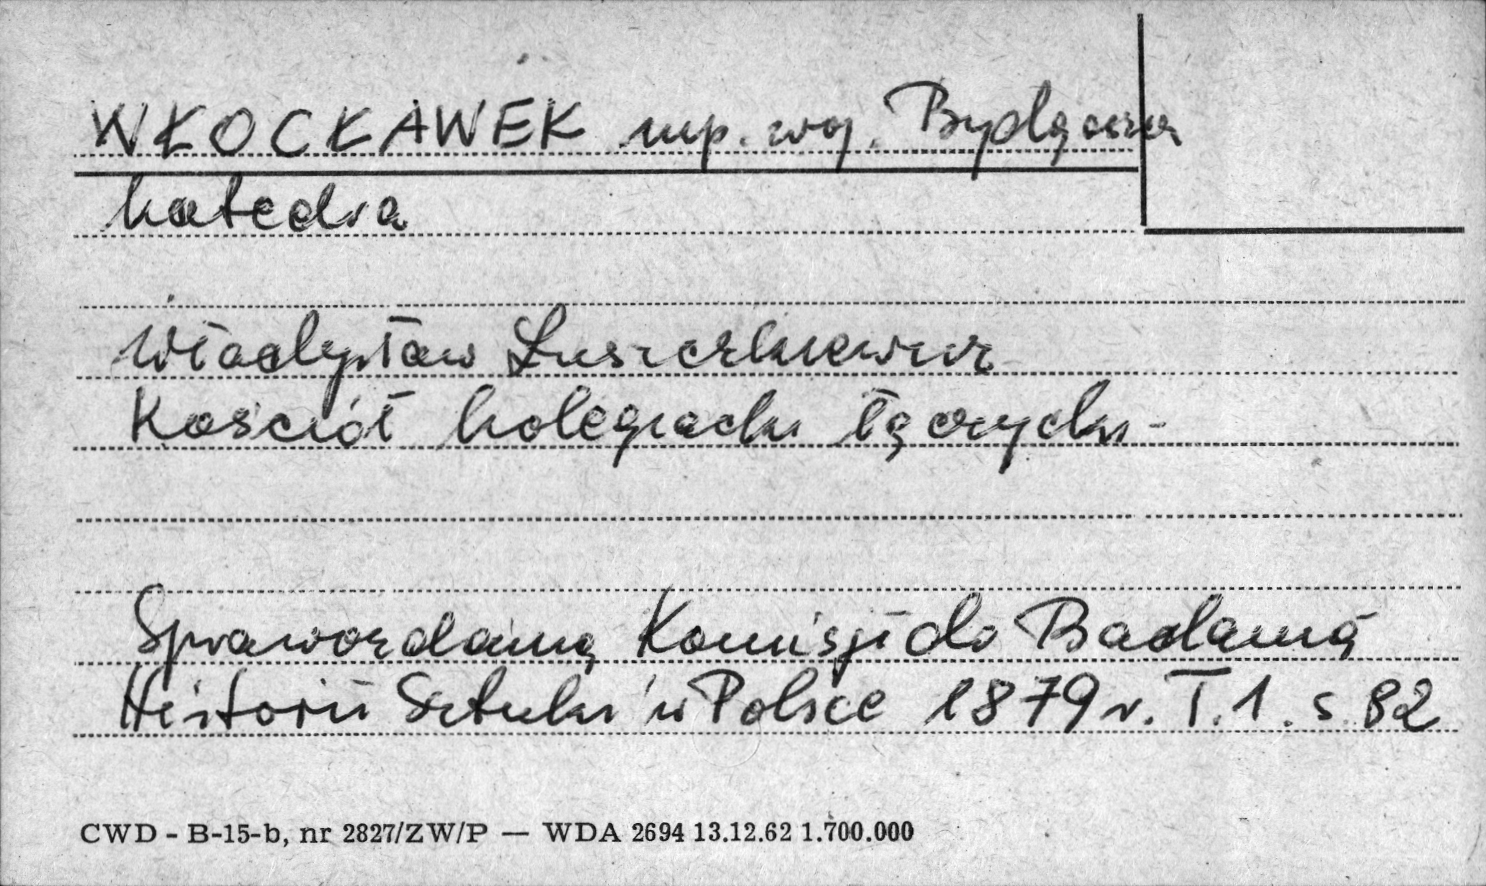 WŁOCŁAWEK mp. woj. Bydgoszcz
katedra
Władysław Łuszczkiewicz
Kościół kolegiacki łęczycki -
Sprawozdania Komisji do Badania
Historii Sztuki w Polsce 1879 r. T. 1. s 82
CWD - B-15-b, nr 2827/ZW/P — WDA 2694 13.12.62 1.700.000